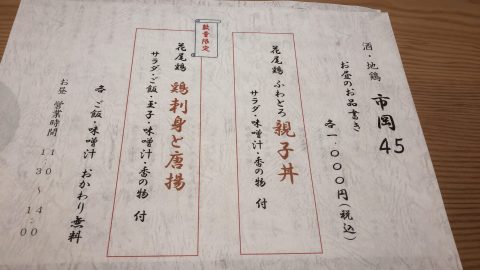 酒・地鶏 市岡45
お昼のお品書き
各一、〇〇〇円(税込)
花尾鶏 ふわとろ 親子丼
サラダ・味噌汁・香の物 付
数量限定
花尾鶏 鶏刺身と唐揚
サラダ・ご飯・玉子・味噌汁・香の物 付
各 ご飯・味噌汁 おかわり無料
お昼 営業時間